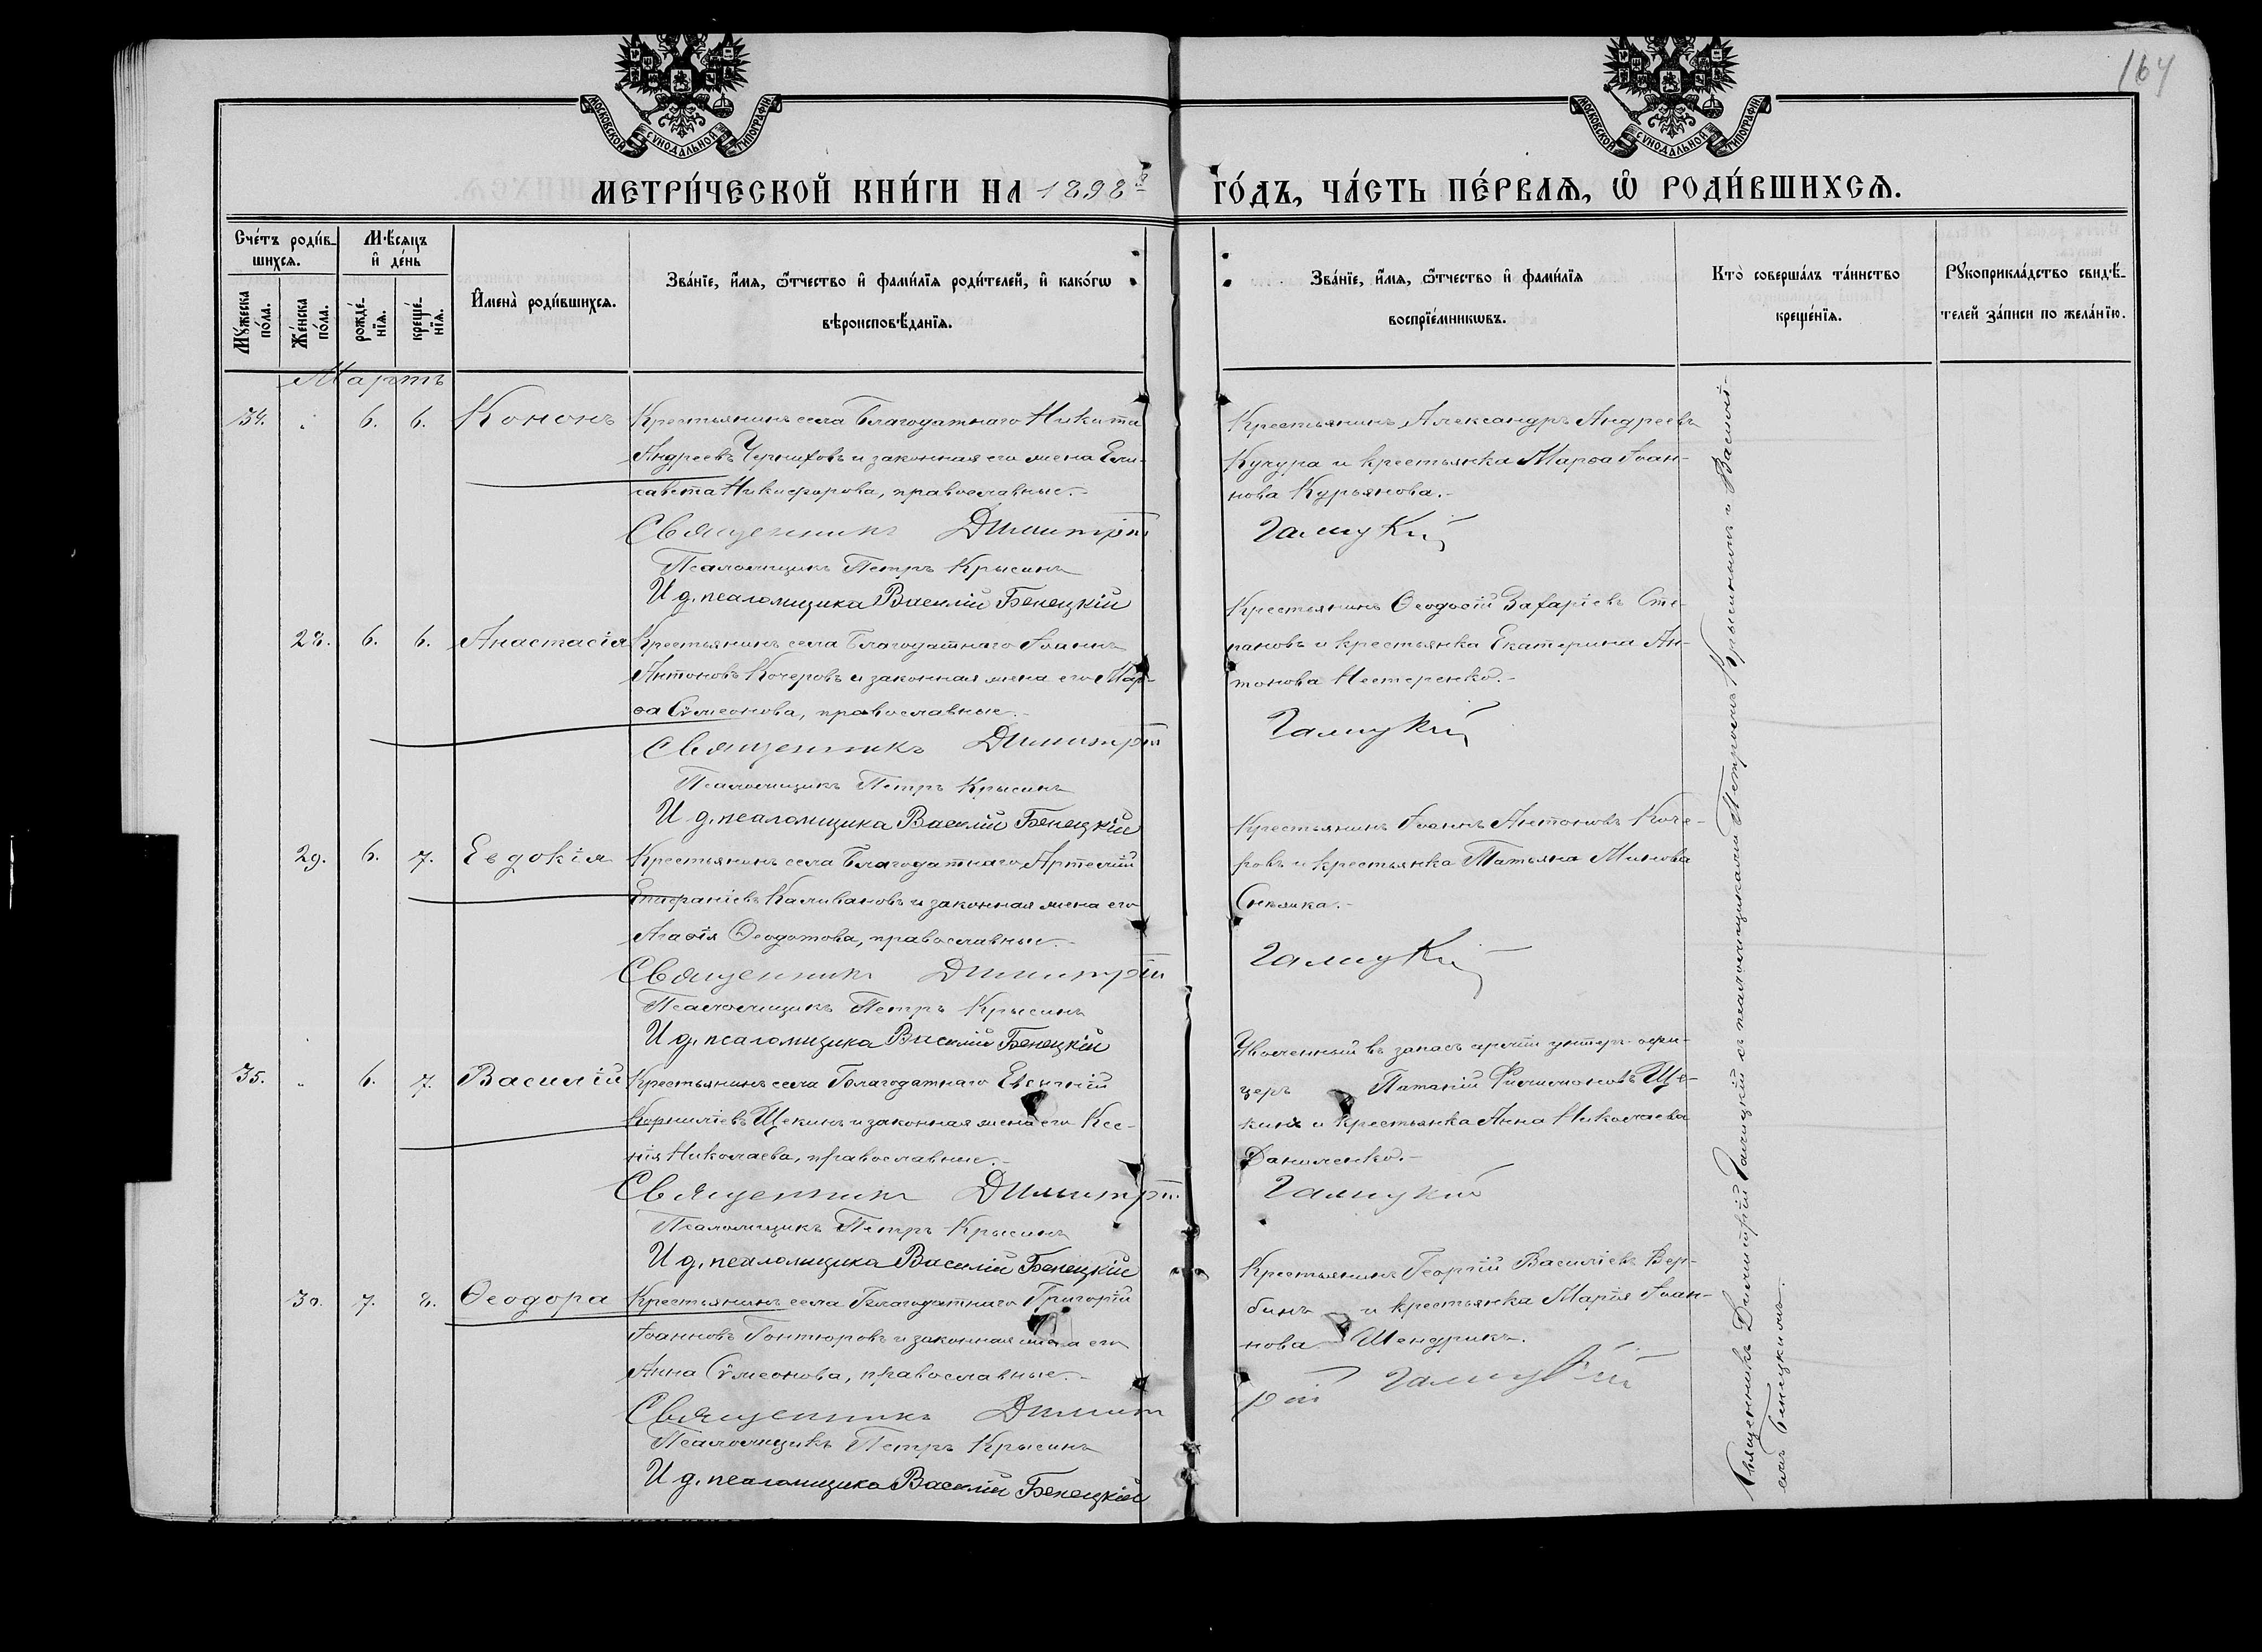 164
МОСКОВСКОЙ СѴНОДАЛЬНОЙ ТИПОГРАФІИ
МОСКОВСКОЙ СѴНОДАЛЬНОЙ ТИПОГРАФІИ
МЕТРИ́ЧЕСКОЙ КНИ́ГИ НА 1898й ГО́ДЪ, ЧА́СТЬ ПЕ́РВАѦ, Ѡ РОДИ́ВШИХСѦ.
Сче́тъ роди́в-
шихсѧ.
Мꙋ́жеска по́ла.
Же́нска по́ла.
Мѣ́сѧцъ
и҆ де́нь
рожде́-
нїѧ.
креще́-
нїѧ.
И҆мена̀ роди́вшихсѧ.
Зва́нїе, и҆́мѧ, ѻ҆́тчество и҆ фами́лїѧ роди́телей, и҆ како́гѡ
вѣроисповѣ́данїѧ.
Зва́нїе, и҆́мѧ, ѻ҆́тчество и҆ фами́лїѧ
воспрїе́мникѡвъ.
Кто̀ соверша́лъ та́инство
креще́нїѧ.
Рꙋкоприкла́дство свидѣ́-
телей за́писи по жела́нїю.
Мартъ
34. " 6. 6. Кононъ Крестьянинъ села Благодатнаго Никита
Андреевъ Черниховъ и законная его жена Ели-
савета Никифорова, православные.-
Священникъ Димитрій
Псаломщикъ Петръ Крысинъ
И д. псаломщика Василій Бенецкій
Крестьянинъ Александръ Андреевъ
Кукура и крестьянка Марѳа Іоан-
нова Курьянова.-
Галицкій
28. 6. 6. Анастасія Крестьянинъ села Благодатнаго Іоаннъ
Антоновъ Кочеровъ и законная жена его Мар-
ѳа Сѵмеонова, православные.-
Священникъ Димитрій
Псаломщикъ Петръ Крысинъ
И д. псаломщика Василій Бенецкій
Крестьянинъ Ѳеодосій Захаріевъ Сте-
пановъ и крестьянка Екатерина Ан-
тонова Нестеренко.-
Галицкій
29. 6. 7. Евдокія Крестьянинъ села Благодатнаго Артемій
Епифаніевъ Каливановъ и законная жена его
Агаѳія Ѳеодотова, православные.-
Священникъ Димитрій
Псаломщикъ Петръ Крысинъ
И д. псаломщика Василій Бенецкій
Крестьянинъ Іоаннъ Антоновъ Коче-
ровъ и крестьянка Татьяна Минова
Галицкій
35. " 6. 7. Василій Крестьянинъ села Благодатнаго Евгеній
Корниліевъ Щекинъ и законная жена его Ксе-
нія Николаева, православные.-
Священникъ Димитрій
Псаломщикъ Петръ Крысинъ
И д. псаломщика Василій Бенецкій
Уволенный въ запасъ арміи унтеръ-офи-
церъ Потапій Филимоновъ Ще-
кинъ и крестьянка Анна Николаева
Даниленко.-
Галицкій
30. 7. 8. Ѳеодора Крестьянинъ села Благодатнаго Григорій
Іоанновъ Гонтюровъ и законная жена его
Анна Сѵмеонова, православные.-
Священникъ Димитрій
Псаломщикъ Петръ Крысинъ
И д. псаломщика Василій Бенецкій
Крестьянинъ Георгій Василіевъ Вер-
бинъ и крестьянка Марія Іоан-
нова Шендрикъ.
Галицкій
Священникъ Димитрій Галицкій съ псаломщиками Петромъ Крысинымъ и Василі-
емъ Бенецкимъ.